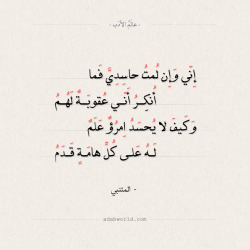 - عالم الأدب -
إِنّي وَإِن لُمتُ حاسِدِيَّ فَما
أُنكِرُ أَنّي عُقوبَةٌ لَهُمُ
وَكَيفَ لا يُحسَدُ اِمرُؤٌ عَلَمٌ
لَهُ عَلى كُلِّ هامَةٍ قَدَمُ
- المتنبي
adabworld.com